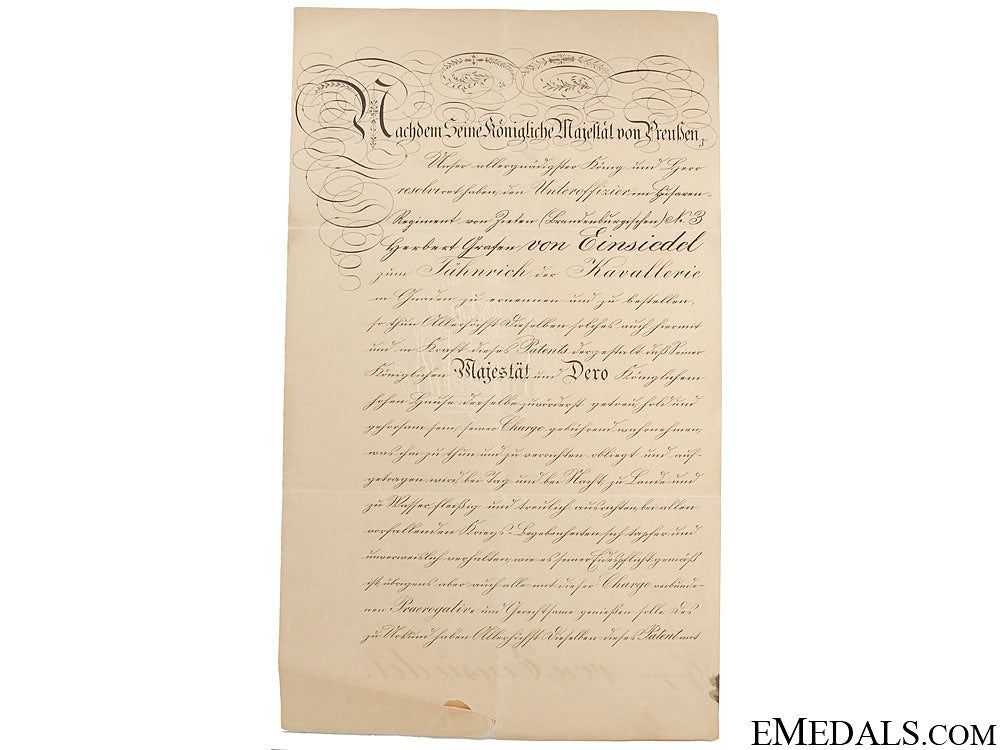 Nachdem Seine Königliche Majestät von Preußen,
Unser allergnädigster König und Herr
resolviret haben, den Unteroffizier im Husaren-
Regiment von Zieten (Brandenburgischen) No. 3
Herbert Grafen von Einsiedel
zum Fähnrich der Kavallerie
in Gnaden zu ernennen und zu bestellen,
so thun Allerhöchst Dieselben solches auch hiermit
und in Kraft dieses Patents dergestalt, daß Seiner
Königlichen Majestät und Dero Königlichem
hohen Hause derselbe zuvörderst getreu, hold und
gehorsam sein, seiner Charge gebührend wahrnehmen,
was ihm zu thun und zu verrichten obliegt und auf-
getragen wird, bei Tag und bei Nacht, zu Lande und
zu Wasser, fleißig und treulich ausrichten, bei allen
vorfallenden Kriegs-Begebenheiten sich tapfer und
unverweislich verhalten, wie es seiner Eidespflicht gemäß
ist, übrigens aber auch alle mit dieser Charge verbunde-
nen Praerogative und Gerechtsame genießen solle. Des
zu Urkund haben Allerhöchst Dieselben dieses Patent mit
von Einsiedel.
EMEDALS.COM